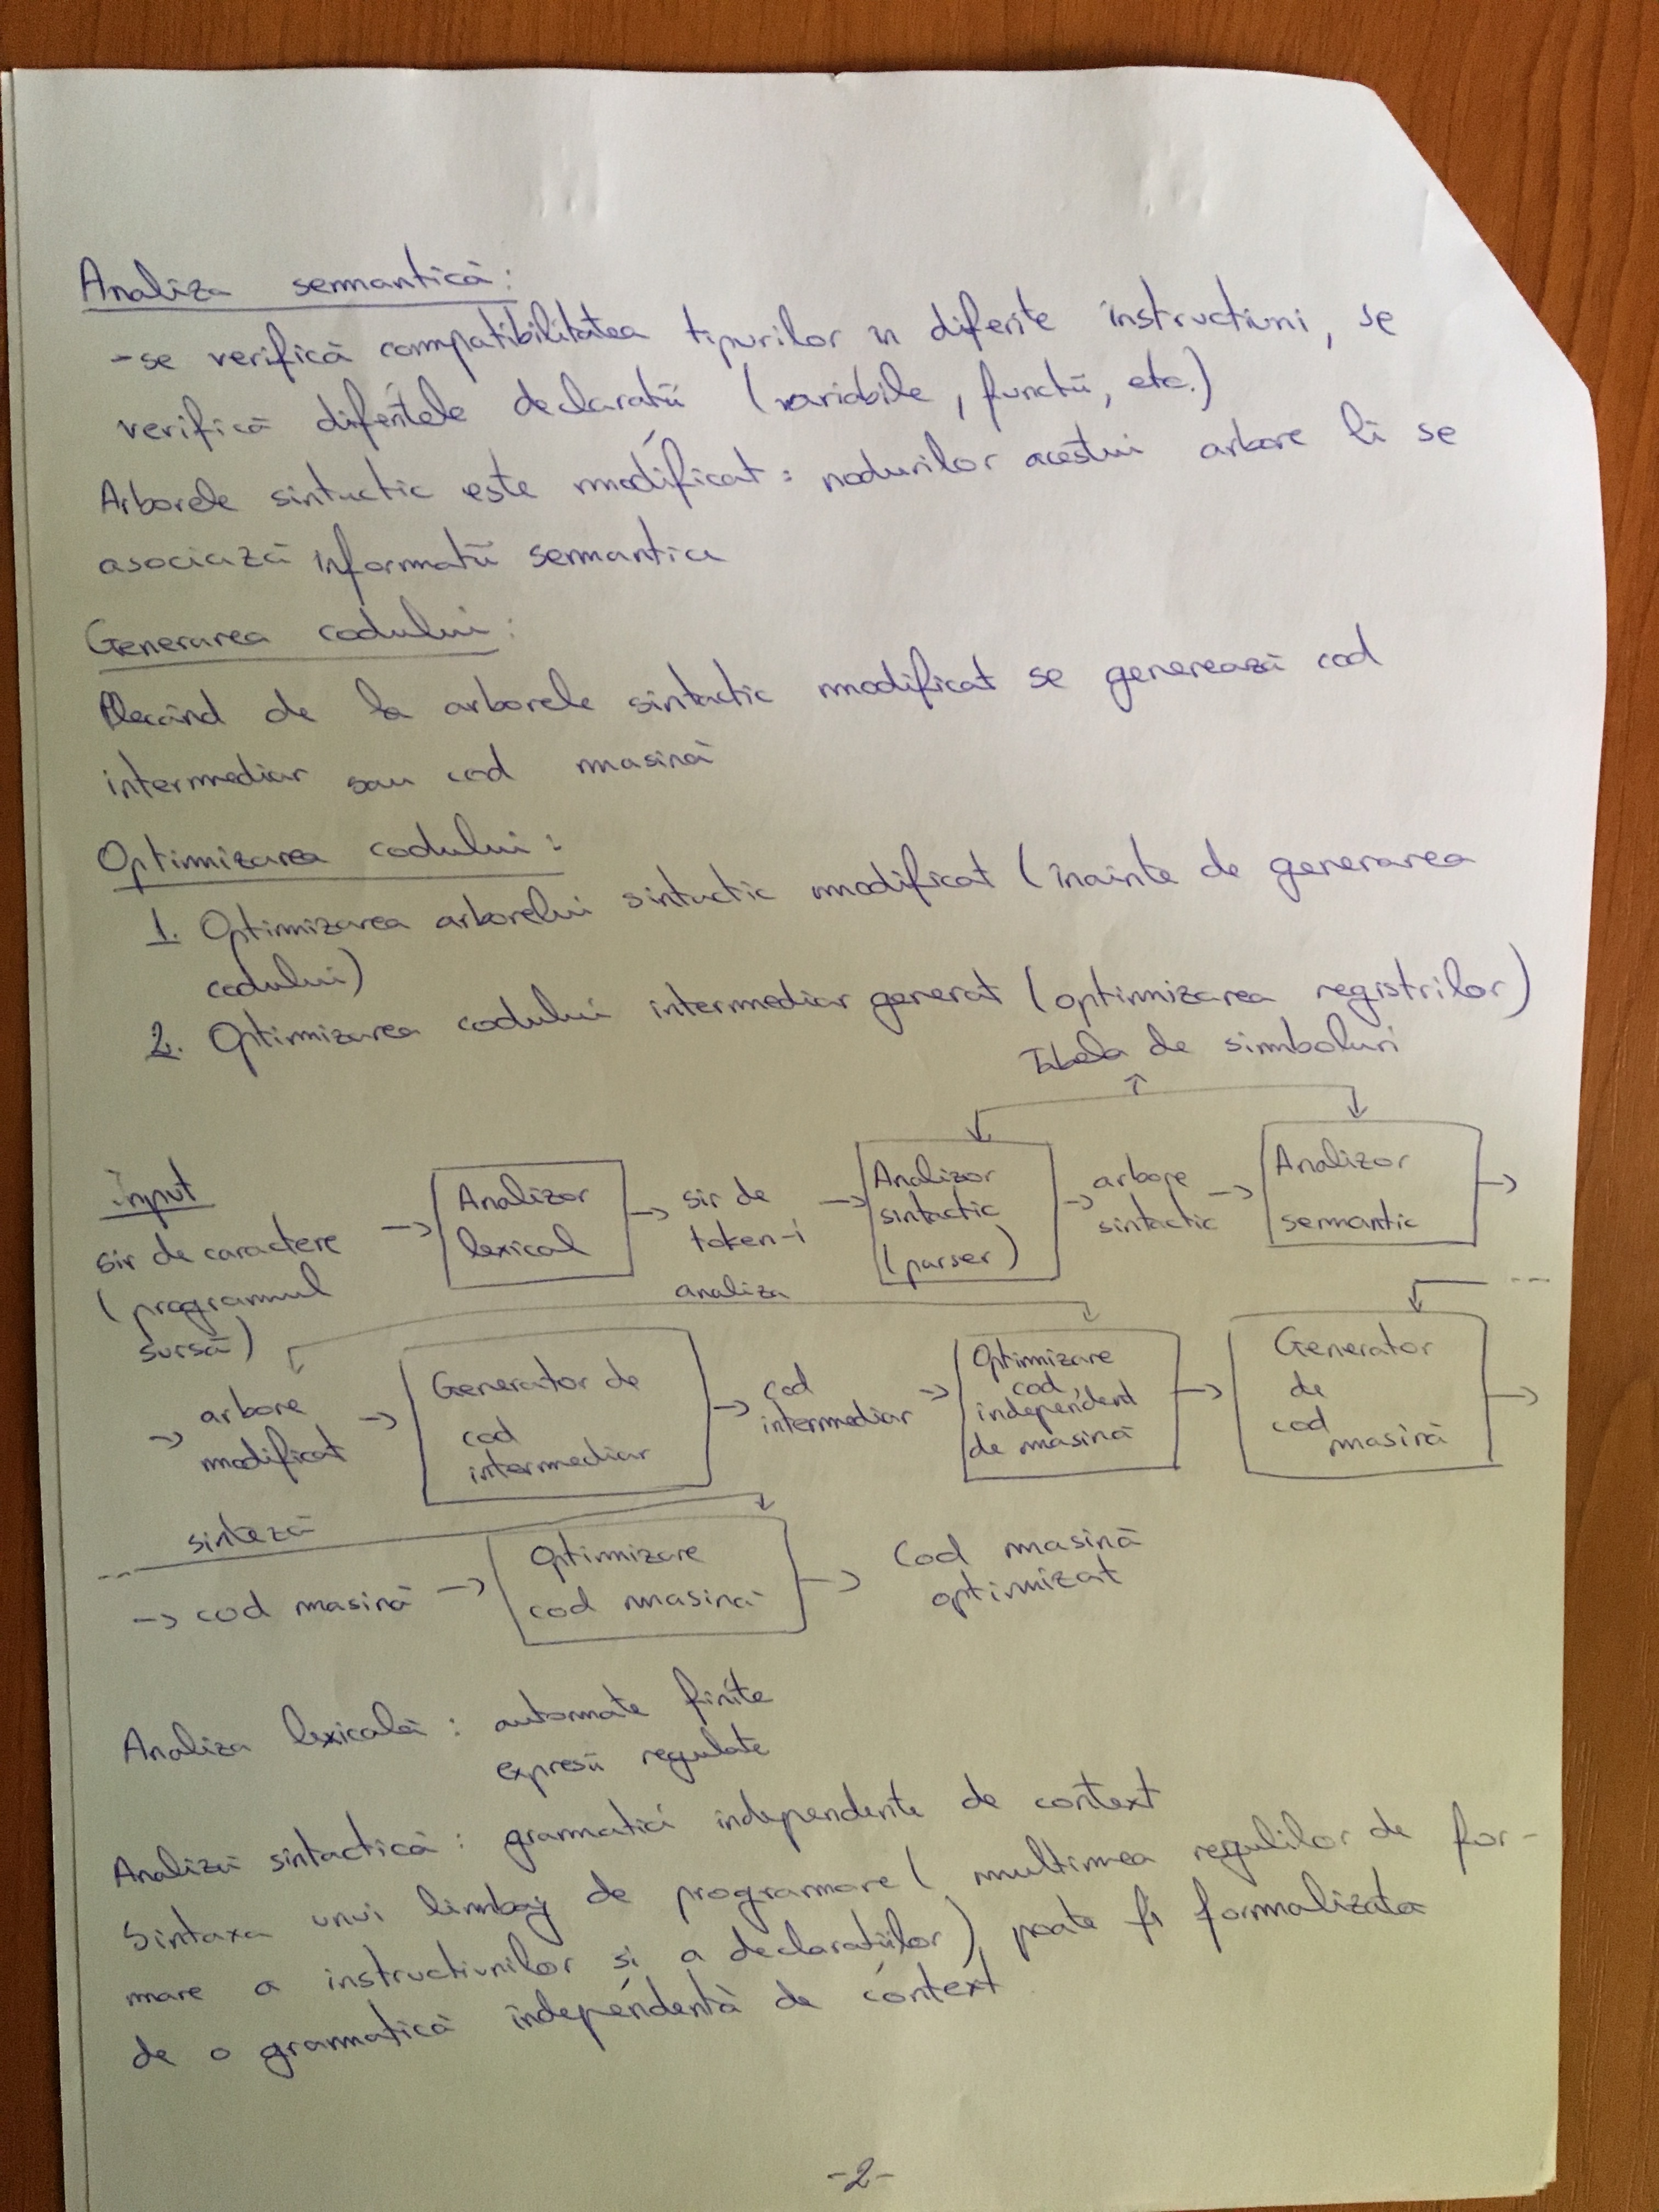 Analiza semantică:
-se verifică compatibilitatea tipurilor în diferite instructiuni, se
verifică difentele declaratii (variabile, functii, etc.)
Arborele sintactic este modificat: nodurilor acestui arbore li se
asociază informatii semantice
Generarea codului:
Plecând de la arborele sintactic modificat se generează cod
intermediar sau cod masină
Optimizarea codului:
1. Optimizarea arborelui sintactic modificat (înainte de generarea
codului)
2. Optimizarea codului intermediar generat (optimizarea registrilor)
Tabela de simboluri
input
sir de caractere
(programul
sursă)
Analizor
lexical
sir de
token-i
Analizor
sintactic
(parser)
arbore
sintactic
Analizor
semantic
analiza
arbore
modificat
Generator de
cod
intermediar
cod
intermediar
Optimizare
cod
independent
de masină
Generator
de
cod
masină
...
sinteză
...
cod masină
Optimizare
cod masină
Cod masină
optimizat
Analiza lexicală: automate finite
expresii regulate
Analiza sintactică: gramatici independente de context
Sintaxa unui limbaj de programare (multimea regulilor de for-
mare a instructiunilor si a declaratiilor) poate fi formalizata
de o gramatică independentă de context
-2-